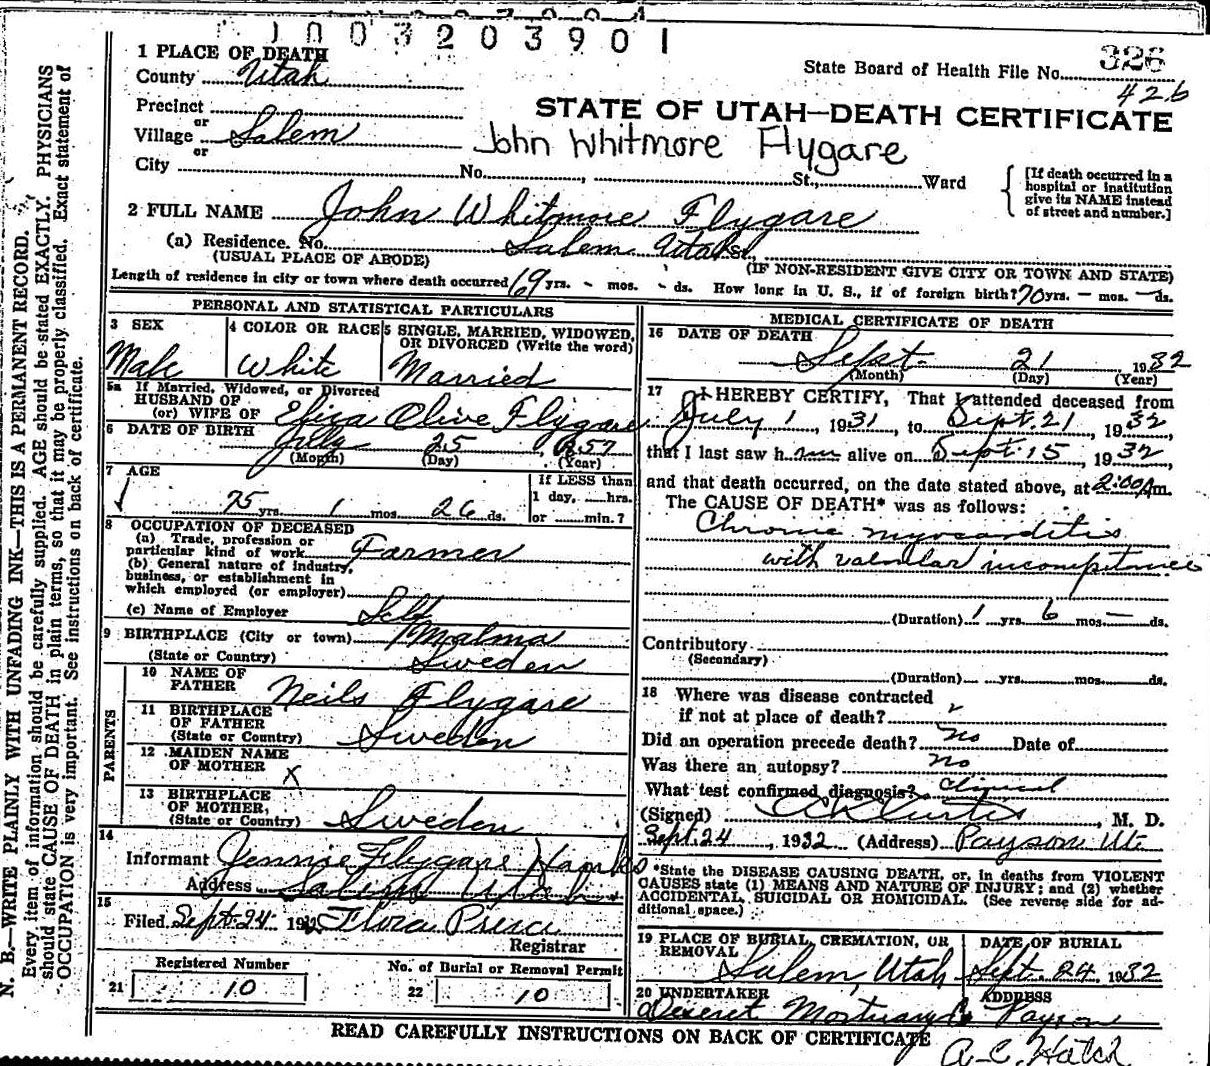 1003203901
1 PLACE OF DEATH
County Utah
State Board of Health File No. 326
426
Precinct
or
Village Salem
or
City
STATE OF UTAH—DEATH CERTIFICATE
John Whitmore Flygare
No. , St., Ward
[If death occurred in a
hospital or institution
give its NAME instead
of street and number.]
2 FULL NAME John Whitmore Flygare
(a) Residence. No. Salem Utah St.,
(USUAL PLACE OF ABODE) (IF NON-RESIDENT GIVE CITY OR TOWN AND STATE)
Length of residence in city or town where death occurred 69 yrs. - mos. - ds. How long in U. S., if of foreign birth? 70 yrs. — mos. — ds.
PERSONAL AND STATISTICAL PARTICULARS
3 SEX
Male
4 COLOR OR RACE
White
5 SINGLE, MARRIED, WIDOWED,
OR DIVORCED (Write the word)
Married
5a If Married, Widowed, or Divorced
HUSBAND OF
(or) WIFE OF Eliza Olive Flygare
6 DATE OF BIRTH July 25, 1857
(Month) (Day) (Year)
7 AGE
75 yrs. 1 mos. 26 ds.
If LESS than
1 day, hrs.
or min.?
8 OCCUPATION OF DECEASED
(a) Trade, profession or
particular kind of work Farmer
(b) General nature of industry,
business, or establishment in
which employed (or employer)
(c) Name of Employer Self
9 BIRTHPLACE (City or town) Malma
(State or Country) Sweden
PARENTS
10 NAME OF
FATHER Neils Flygare
11 BIRTHPLACE
OF FATHER
(State or Country) Sweden
12 MAIDEN NAME
OF MOTHER X
13 BIRTHPLACE
OF MOTHER,
(State or Country) Sweden
14
Informant Jennie Flygare Hanks
Address Salem Utah
15
Filed Sept 24 1932 Flora Pierce
Registrar
Registered Number
21 10
No. of Burial or Removal Permit
22 10
MEDICAL CERTIFICATE OF DEATH
16 DATE OF DEATH
Sept 21 1932
(Month) (Day) (Year)
17 I HEREBY CERTIFY, That I attended deceased from
July 1, 1931, to Sept. 21, 1932,
that I last saw him alive on Sept. 15, 1932,
and that death occurred, on the date stated above, at 2:00 Am.
The CAUSE OF DEATH* was as follows:
Chronic myocarditis
with valvular incompetence
(Duration) 1 yrs. 6 mos. — ds.
Contributory
(Secondary)
(Duration) yrs. mos. ds.
18 Where was disease contracted
if not at place of death?
Did an operation precede death? no Date of
Was there an autopsy? no
What test confirmed diagnosis? Clinical
(Signed) Curtis, M. D.
Sept. 24, 1932 (Address) Payson Ut.
*State the DISEASE CAUSING DEATH, or, in deaths from VIOLENT
CAUSES state (1) MEANS AND NATURE OF INJURY; and (2) whether
ACCIDENTAL, SUICIDAL OR HOMICIDAL. (See reverse side for ad-
ditional space.)
19 PLACE OF BURIAL, CREMATION, OR
REMOVAL
Salem, Utah
DATE OF BURIAL
Sept 24 1932
20 UNDERTAKER
Deseret Mortuary Co
ADDRESS
Payson
READ CAREFULLY INSTRUCTIONS ON BACK OF CERTIFICATE
A. C. Hatch
N. B.—WRITE PLAINLY WITH UNFADING INK—THIS IS A PERMANENT RECORD.
Every item of information should be carefully supplied. AGE should be stated EXACTLY. PHYSICIANS
should state CAUSE OF DEATH in plain terms, so that it may be properly classified. Exact statement of
OCCUPATION is very important. See instructions on back of certificate.